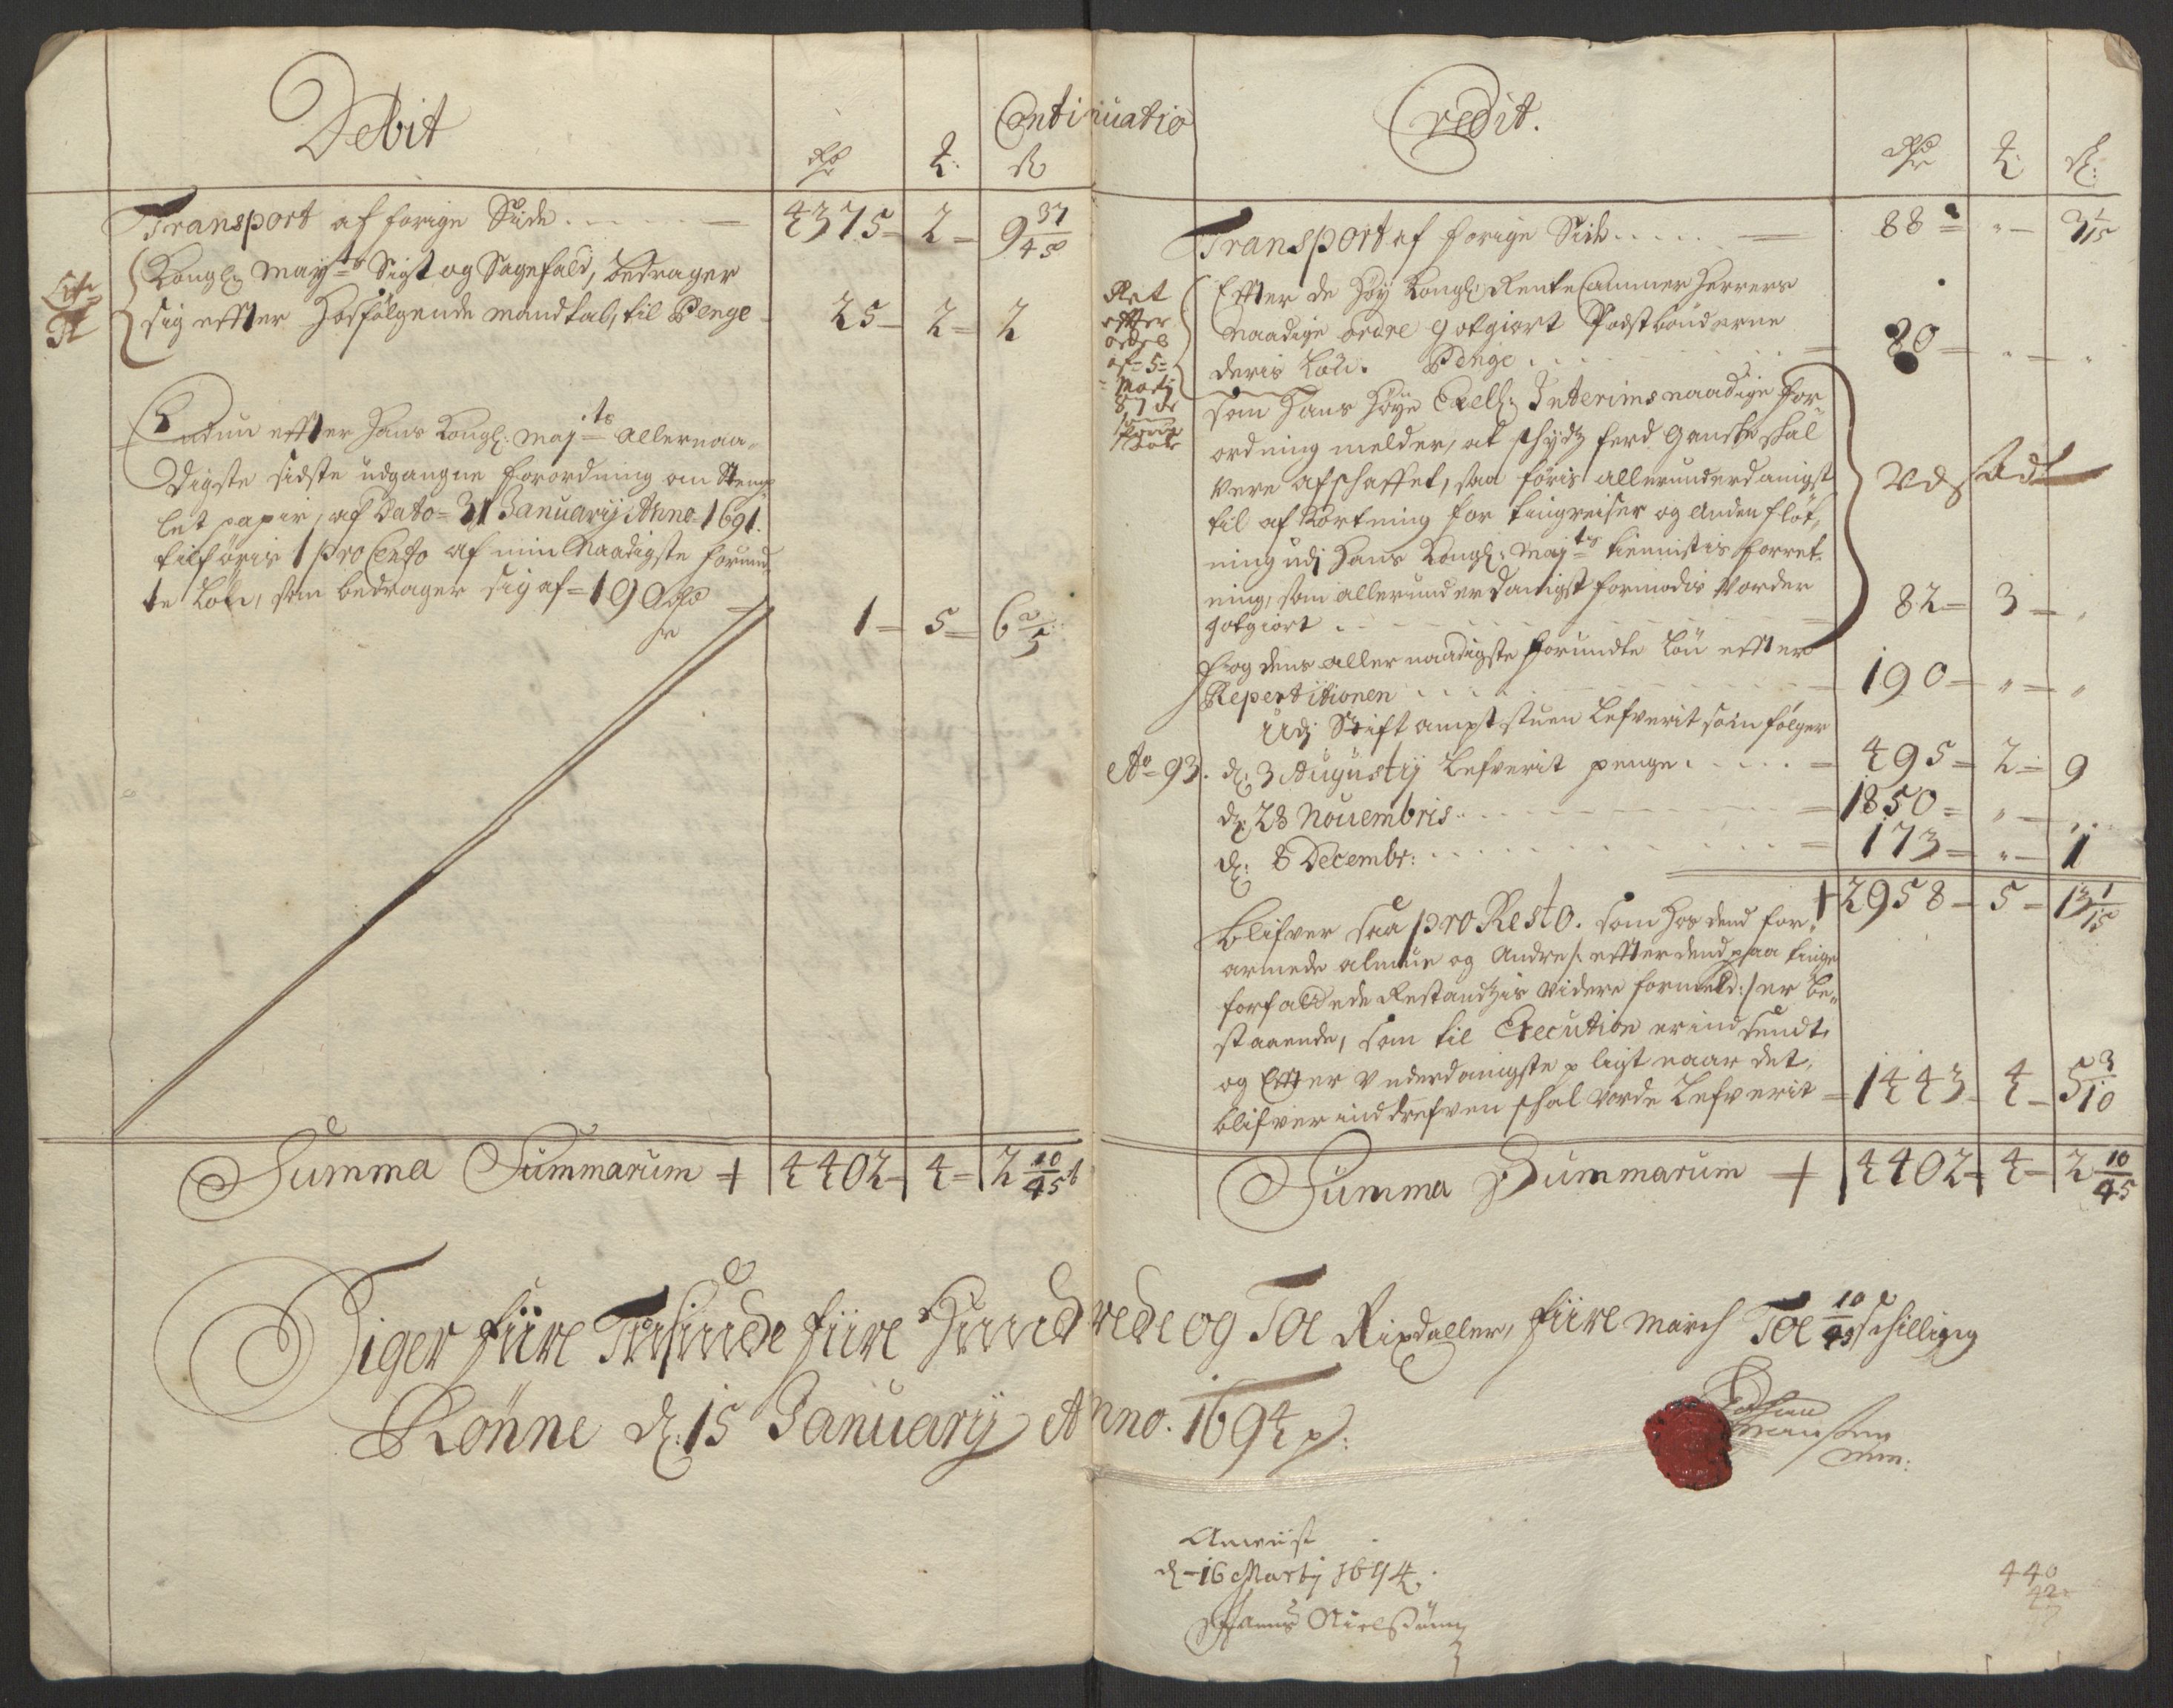 Debit
Continuatio
Rd ʒ: ß
Transport af forige Side . . . . . 4375 – 2 – 9 37/45
Kongl: Mayts Sigt og Sagefald, bedrager
sig efter Hosfölgende mandtal, til Penge – 25 – 2 – 2
Endnu efter Hans Kongl: Mayts allernaa-
digste sidste udgangne forordning om Stemp-
let papir, af Dato = 31 Januarij Anno = 1691.
tilföris 1 pro Cento af min Naadigste forund-
te Lön, som bedrager sig af = 190 Rdr 1 – 5 – 6 2/5
Summa Summarum + 4402 – 4 – 2 10/45
Credit.
Rdr ʒ: ß:
Transport af forige Side . . . . . 88 – „ – 3 1/15
Ret
efter
ordre
af = 5 =
Martj
Efter de Höy Kongl: Rente Cammer Herrers
Naadige ordre godgiort Postbönderne
deris Lön. Penge . . . 20 – „ – „
som Hans Höye Exell: Interims naadige for
ordning melder, at schydtz ferd Ganske skal
Vere afschaffet, saa föris allerunderdanigst
til afkortning for tingreiser og Anden flöt,
ning udj Hans Kongl: Majts tiennistis forret-
ning, som allerunderdanigst formodis Vorder
godgiort . . . 82 – 3 – „
Vdsadt
Fogdens aller naadigste forundte Lön efter
Repertitionen . . . 190 – „ – „
Udj Stift ampt stuen Lefverit som fölger
Ao = 93. d: 3 Augustij Lefverit penge . . . . . 495 – 2 – 9
d: 28 Nouembris . . . 1850 – „ – „
d: 8 Decembr: . . . 173 – „ – 1
+ 2958 – 5 – 13 1/15
Blifver saa pro Resto. som hos dend for-
armede almue og Andre /: efter dend paa tinge
forfattede Restandzis videre formeld :/ er be-
staaende, som til Execution er indsendt
og Efter Vnderdanigste pligt naar det
blifver inddrefven schal vorde Lefverit – 1443 – 4 – 5 3/10
Summa Summarum + 4402 – 4 – 2 10/45
Siger fiire Tusinde fiire Hundrede og Toe Rixdaller, fiire march Toe 10/45 schilling
Rönne d: 15 Januarij Anno. 1694 p:
mm:
Anviist
d – 16 Martj 1694.
Hanns Nielssönn
440
42